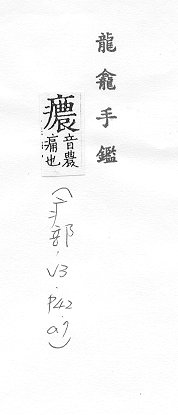 龍龕手鑑
癑音農痛也
(疒部, V3. P42. a.7)